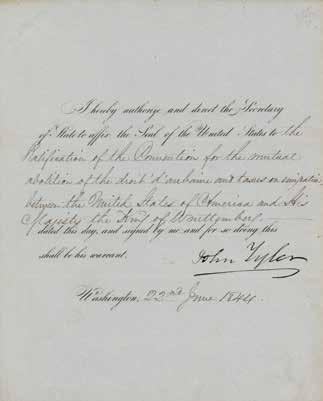 I hereby authorize and direct the Secretary
of State to affix the Seal of the United States to the
Ratification of the Convention for the mutual
abolition of the droit d'aubaine and taxes on emigration,
between the United States of America and His
Majesty the King of Wurttemberg.
dated this day, and signed by me and for so doing this
shall be his warrant.
John Tyler
Washington, 22nd June 1844.